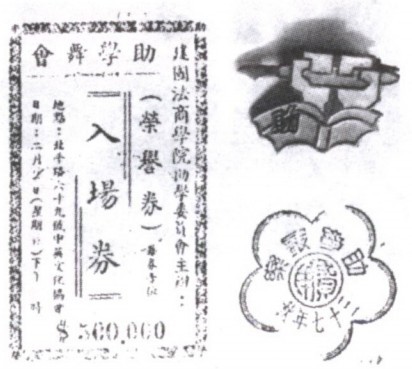 助學舞會
建國法商學院助學委員會主辦：
(榮譽券)
入場券
地點：北平路六十九號中英文化協會
日期：二月 日(星期 )下 時
$500,000
助
助學
三十七年